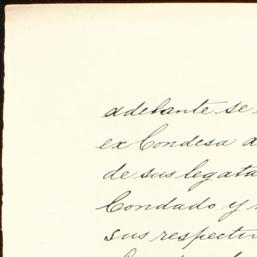 adelante se
ex Condesa
de sus legata
Condado y
sus respecti